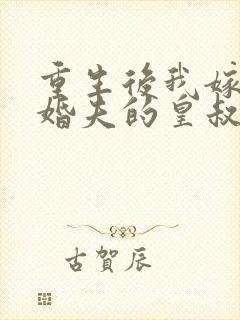 重生後我嫁
婚夫的皇叔
古賀辰